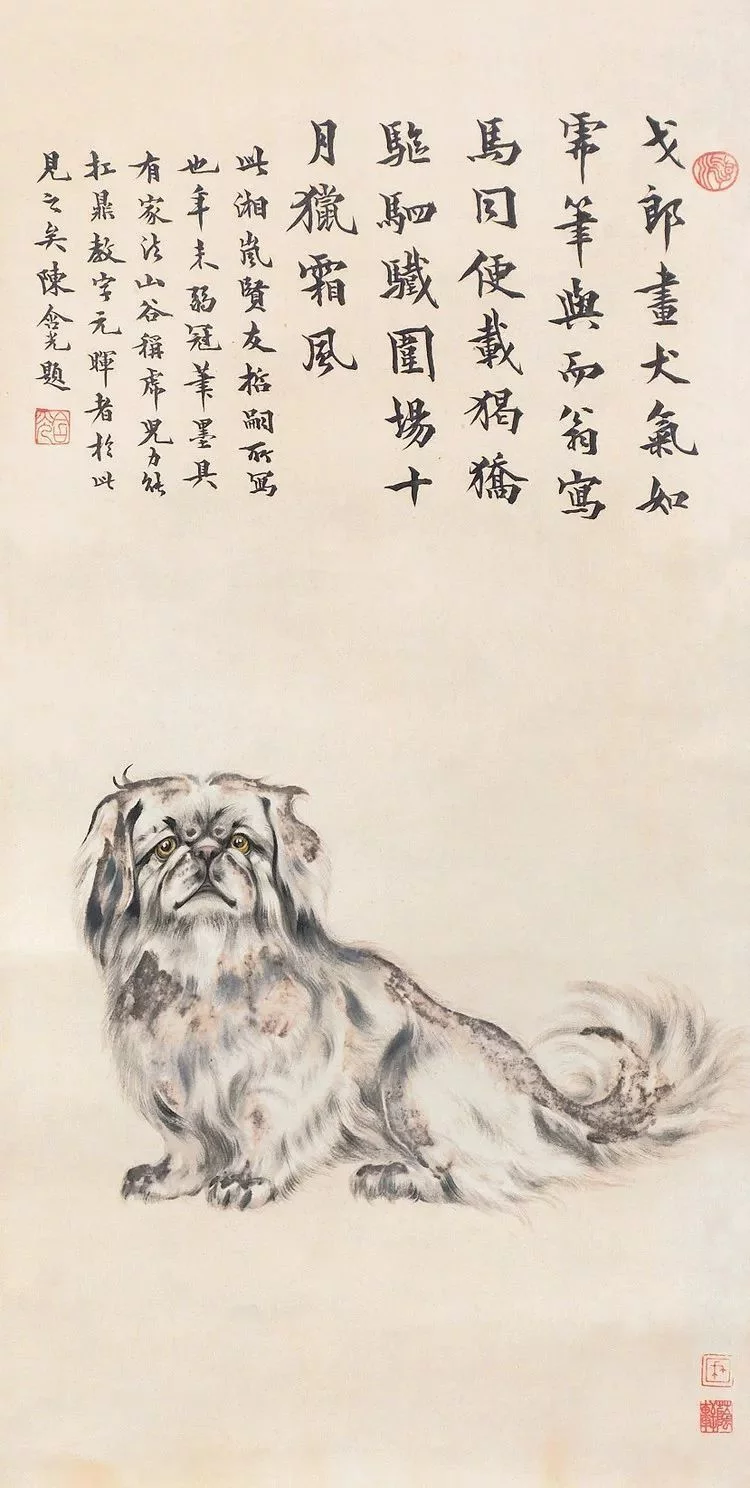 戈郎畫犬氣如
筆與而翁寫
馬同便載猲獢
驅駟驖圍場十
月獵霜風
此湘嵐賢友哲嗣所寫
也年未弱冠筆墨具
有家法山谷稱虎兒力能
扛鼎教字元暉者於此
見之矣陳含光題